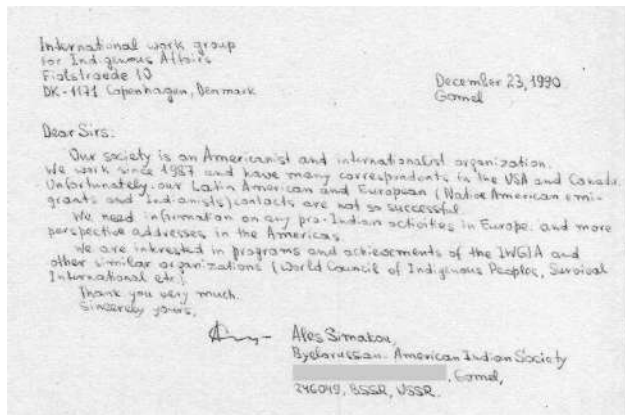 International work group
for Indigenous Affairs
Fiolstraede 10
DK-1171 Copenhagen, Denmark
December 23, 1990
Gomel
Dear Sirs:
Our society is an Americanist and internationalist organization.
We work since 1987 and have many correspondents in the USA and Canada.
Unfortunately, our Latin American and European (Native American emi-
grants and Indianists) contacts are not so successful.
We need information on any pro-Indian activities in Europe, and more
perspective addresses in the Americas.
We are interested in programs and achievements of the IWGIA and
other similar organizations (World Council of Indigenous Peoples, Survival
International etc.)
Thank you very much.
Sincerely yours,
Ales Simakou,
Byelorussian-American Indian Society
, Gomel,
246049, BSSR, USSR.